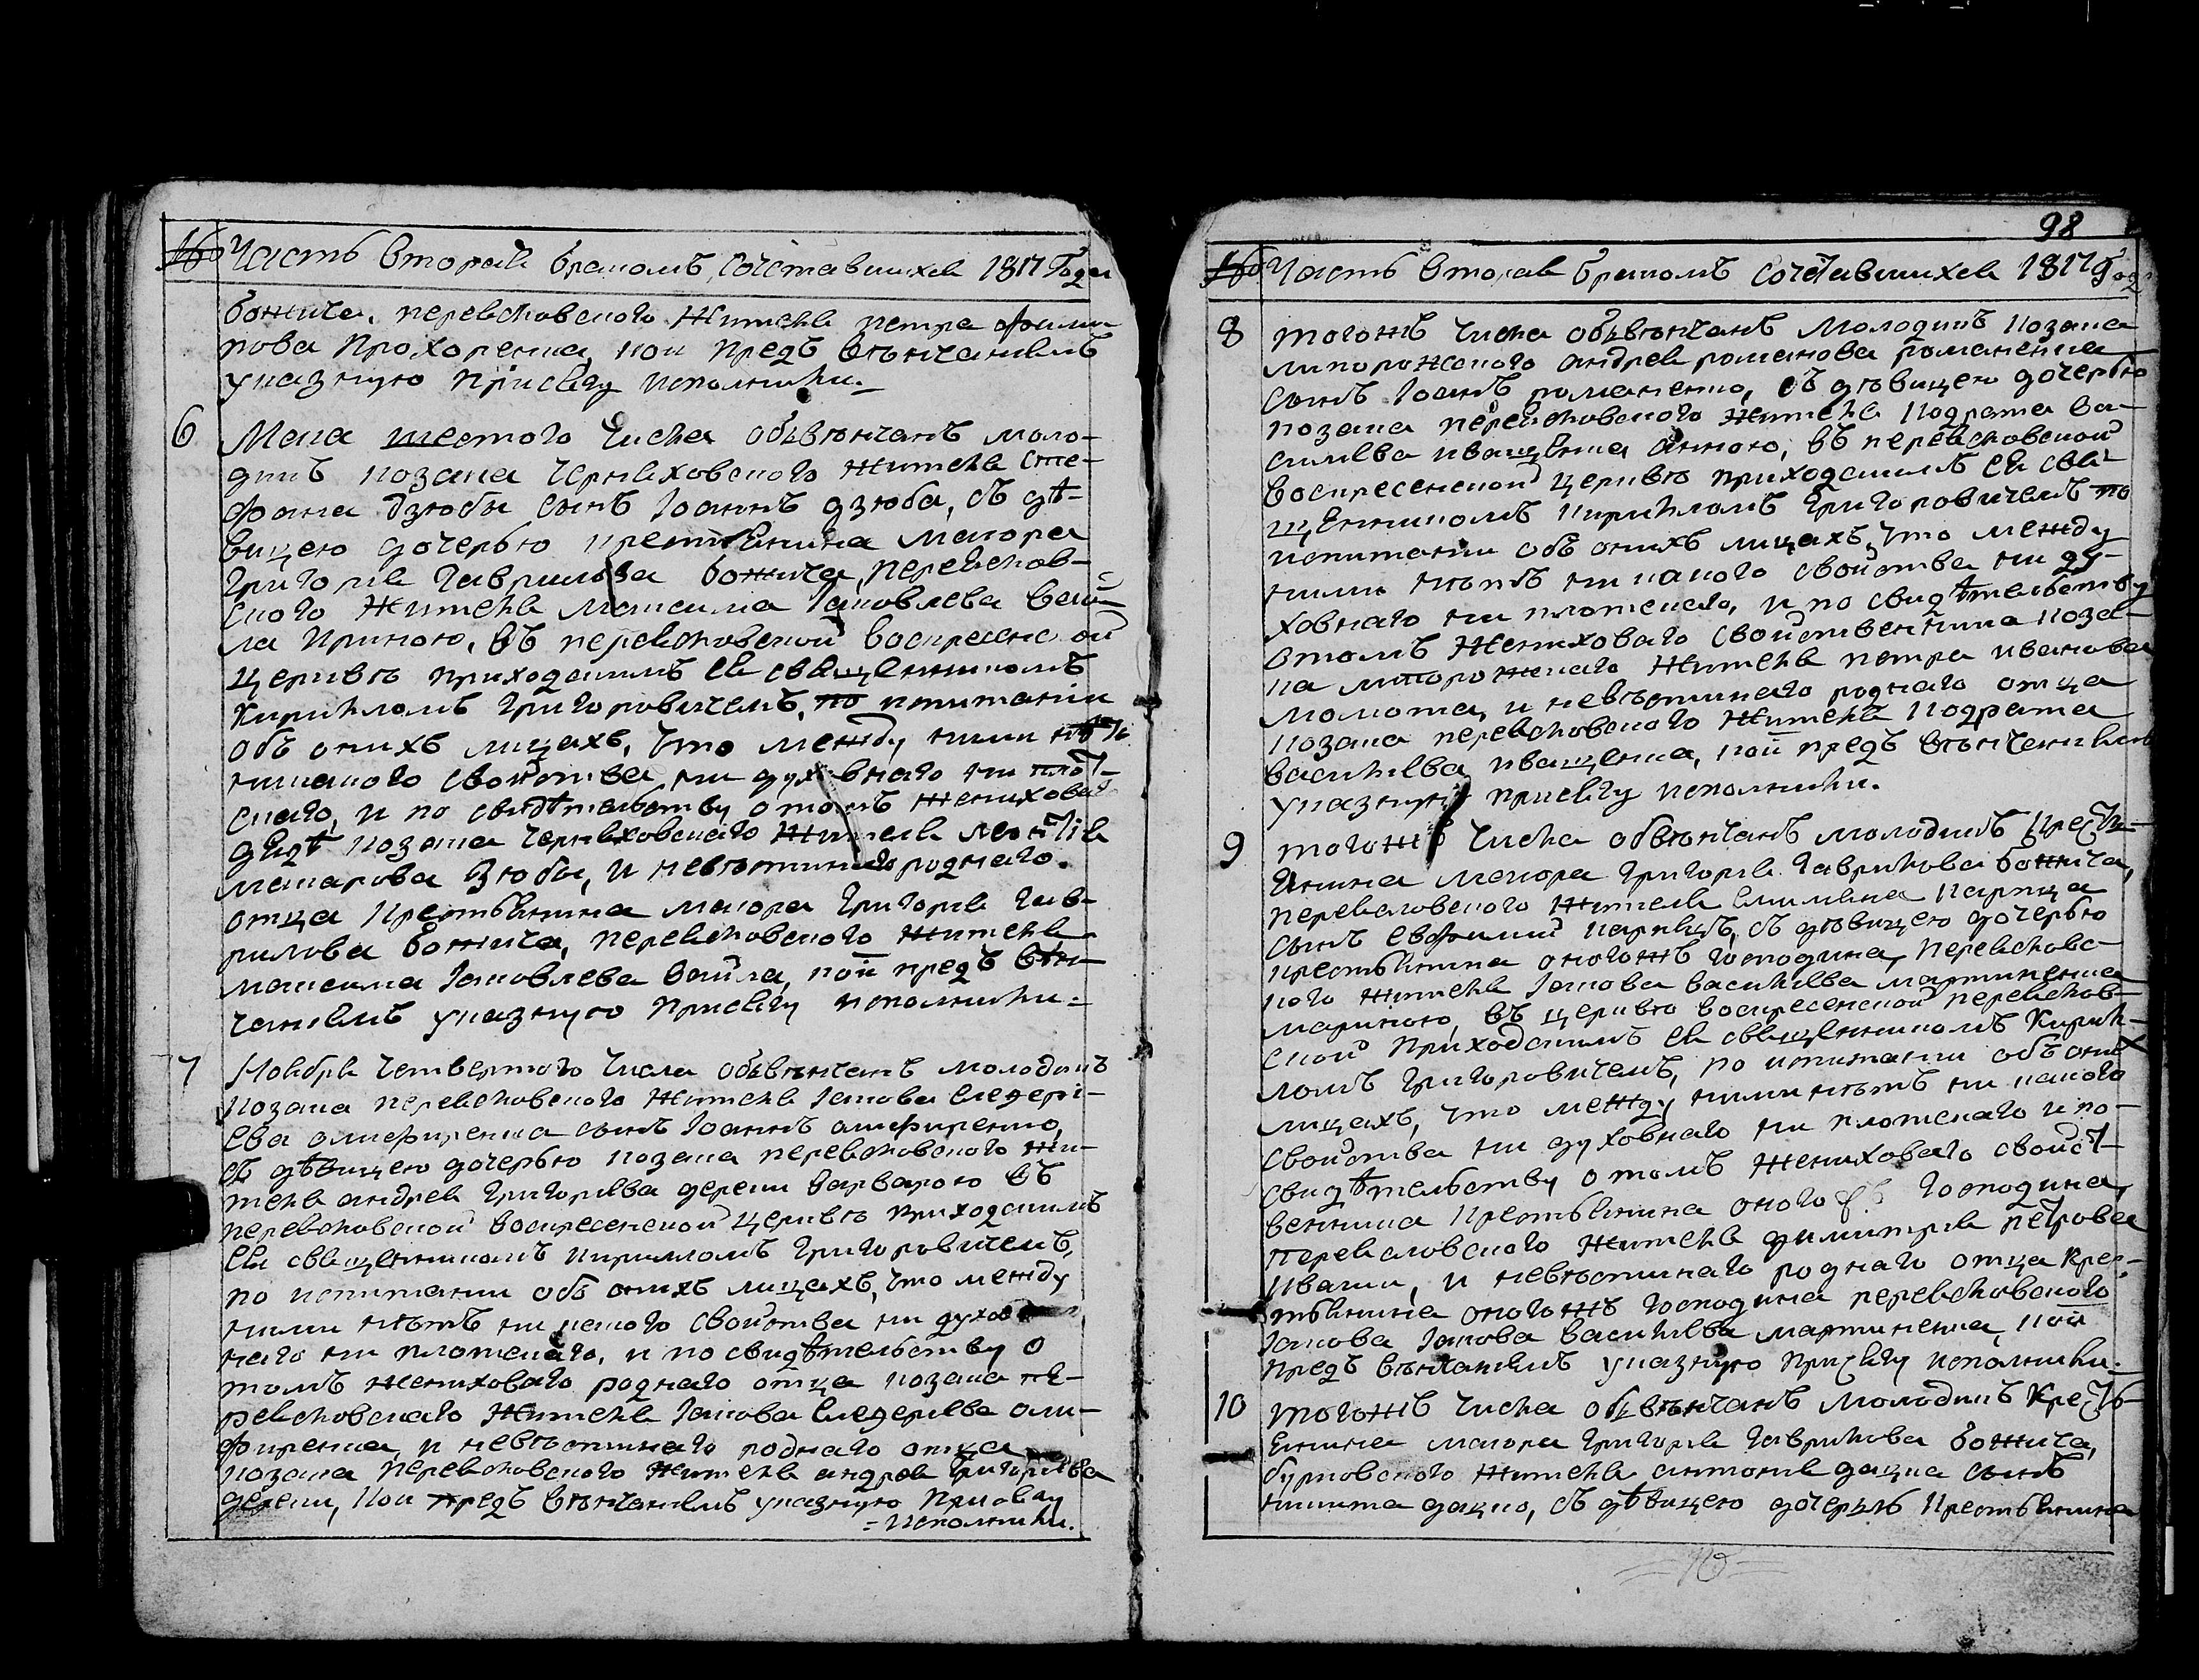 Часть вторая бракомъ сочетавшихся 1817 Года
божича, перевсковского жителя петра
рова Прохоренка, кои предъ вѣнчаніемъ
указную присягу исполнили.
6 Маиа шестого числа обвѣнчанъ моло-
дикъ козака черняховского жителя сте-
фана дзюбы сынъ Iоаннъ дзюба, съ дѣ-
вицею дочерью крестьянина маиора
григорія гаврилова божича, перевсков-
ского жителя максима Iаковлева
ла ириною, въ перевсковской воскресенс ой
церкве приходскимъ ея священникомъ
Кирилломъ григоровичемъ, по испитаніи
объ онихъ лицахъ, что между ними нѣтъ
никакого свойства ни духовнаго ни плот-
скаго, и по свидѣтелству о томъ женихова
дяди козака черняховскаго жителя
макарова Зюбы, и невѣстинаго роднаго.
отца крестьянина маиора григорія гав-
рилова божича, перевсковского жителя
максима Iаковлева кои предъ вѣн-
чаніемъ указную присягу исполнили=
7 Ноября четвертого числа обвѣнчанъ молодикъ
козака перевсковского жителя Iакова
ева синъ Iоаннъ
съ дѣвицею дочерью козака перевсковского жи-
теля андрея григоріева дереки варварою въ
перевсковской воскресенской церкве приходскимъ
ея священникомъ кирилломъ григоровичемъ,
по испитании объ онихъ лицахъ, что между
ними нѣтъ ни какого свойства ни духов
наго ни плотскаго, и по свидѣтельству о
томъ женихового роднаго отца козака пе-
ревсковскаго жителя Iакова
и невѣстинаго роднаго отца
козака перевсковского жителя андрея григоріева
дереки, кои предъ вѣнчаніемъ указную присягу
=исполнили.
98
Часть вторая бракомъ сочетавшихся 1817 Года
8 тогожъ числа обвѣнчанъ молодикъ козака
андрея романова романенка
сынъ Iоанъ романенко, съ дѣвицею дочерью
козака перевсковского жителя кодрата ва-
силиева иващенка анною, въ перевсковской
воскресенской церкве приходскимъ ея свя-
щенникомъ кирилломъ григоровичемъ по
испитании объ онихъ лицахъ, что между
ними нѣтъ ни какого свойства ни ду-
ховнаго ни плотскаго, и по свидѣтельству
о томъ жениховаго свойственника коза-
ка жителя петра иванова
и невѣстинаго роднаго отца
козака перевсковского жителя кодрата
василиева иващенка, кои предъ вѣнчаніемъ
указную присягу исполнили.
9 тогожъ числа обвѣнчанъ молодикъ крестья-
янина маиора григорія гаврилова божича,
перевсковского жителя
сынъ евфимий съ дѣвицею дочерью
крестьянина оногожъ господина, перевсковс
кого жителя Iакова василиева мартиненка
мариною, въ церкве воскресенской перевсков-
ской приходскимъ ея священникомъ Кирил-
ломъ григоровичемъ, по испитании объ онихъ
лицахъ, что между ними нѣтъ ни какого
свойства ни духовнаго ни плотскаго и по-
свидѣтельству о томъ жениховаго свойст-
венника крестьянина оного господина,
перевсковского жителя димитрія петрова
и невѣстинаго роднаго отца крес-
тьянина оногожъ господина перевсковского
Iакова Iакова василиева мартиненка, кои
предъ вѣнчаніемъ указную присягу исполнили.
10 тогожъ числа обвѣнчанъ молодикъ кресть-
янина маиора григорія гаврилова божича,
жителя антонія дацка сынъ
никита дацко, съ дѣвицею дочерью крестьянина